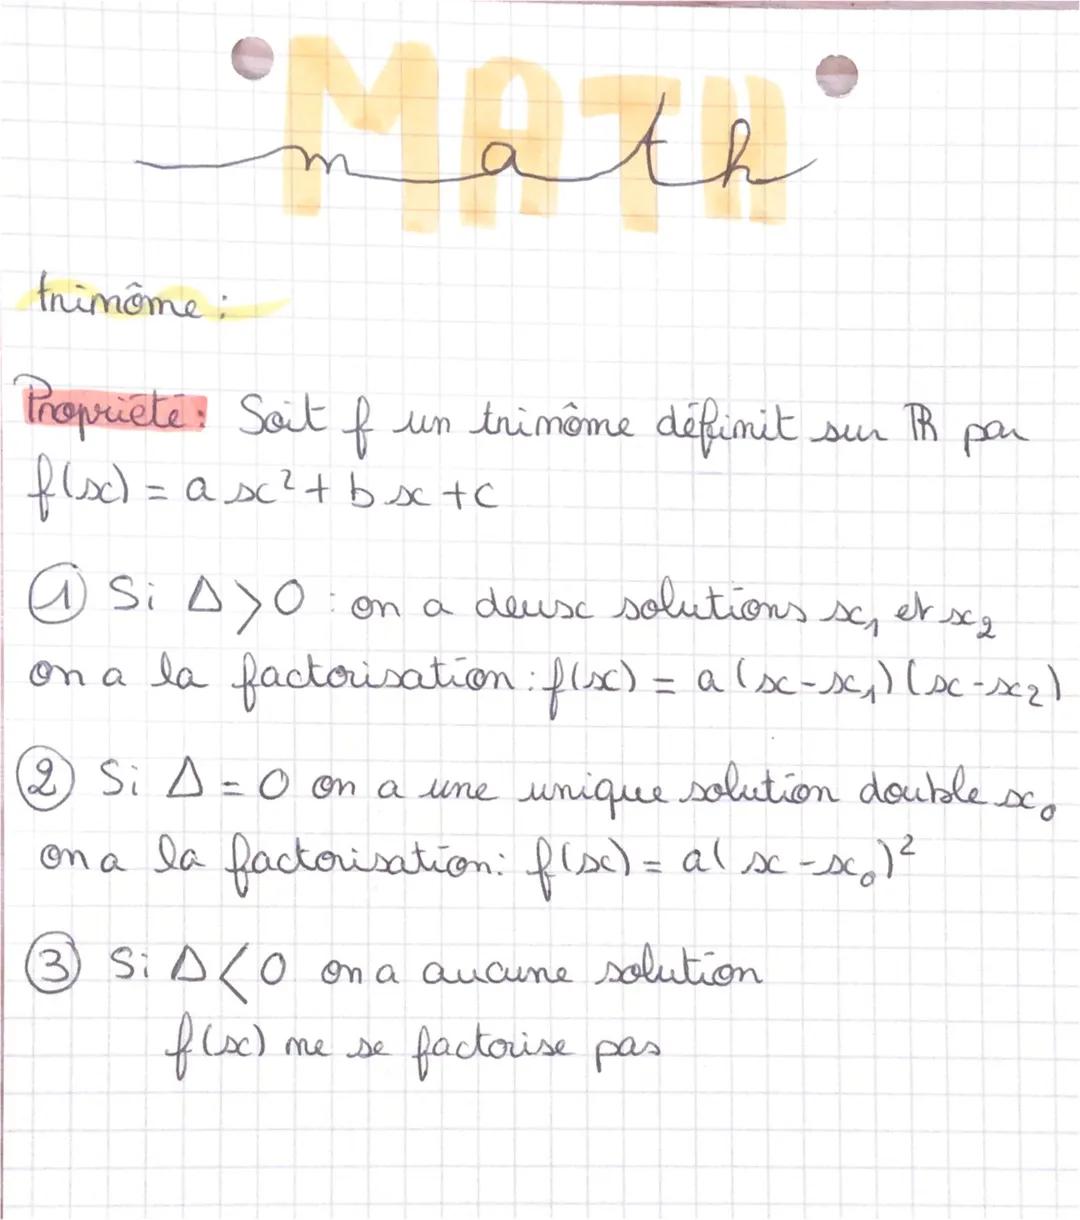 MATH
math
trinôme :
Propriété : Soit f un trinôme définit sur ℝ par
f(x) = a x² + b x + c
① Si Δ > 0 : on a deux solutions x₁ et x₂
on a la factorisation : f(x) = a(x-x₁)(x-x₂)
② Si Δ = 0 on a une unique solution double x₀
on a la factorisation : f(x) = a(x-x₀)²
③ Si Δ < 0 on a aucune solution
f(x) ne se factorise pas